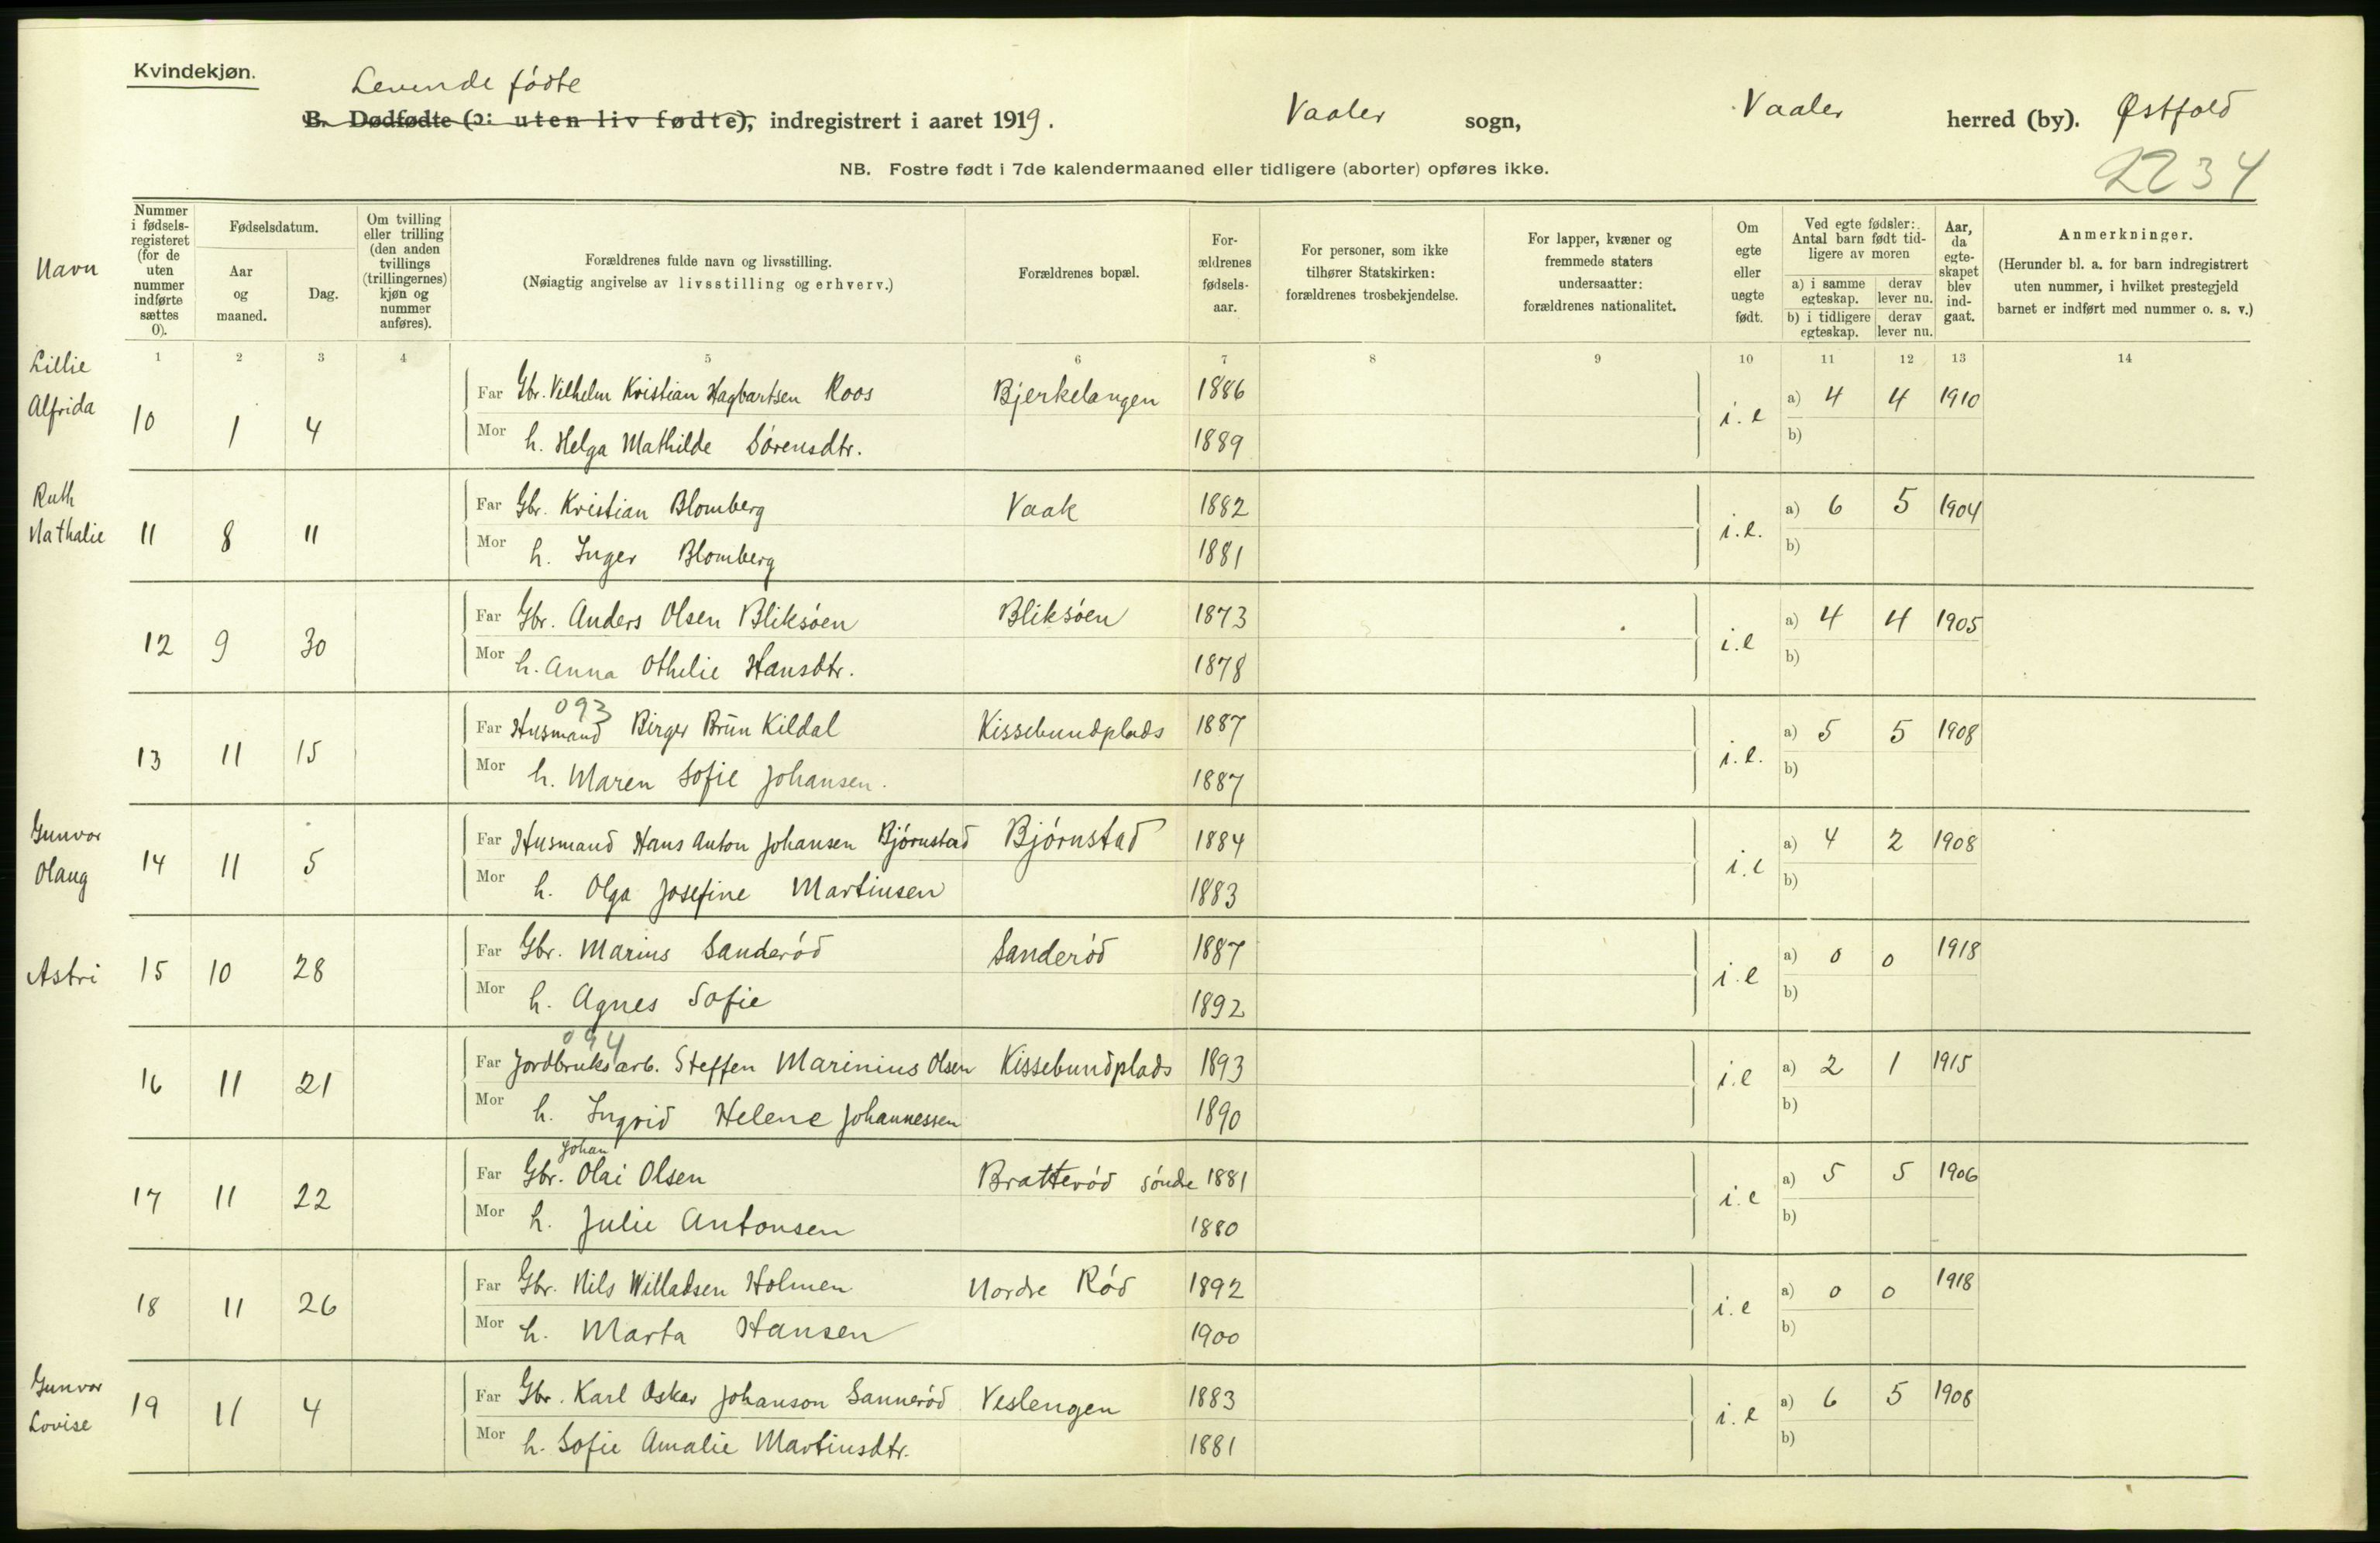 Kvindekjøn.
Levende fódte
B. Dødfødte (ɔ: uten liv fødte), indregistrert i aaret 1919. Vaaler sogn, Vaaler herred (by). Østfold
NB. Fostre født i 7de kalendermaaned eller tidligere (aborter) opføres ikke.
2234
Navn
Nummer i fødsels-registeret (for de uten nummer indførte sættes 0).
Fødselsdatum.
Aar og maaned.
Dag.
Om tvilling eller trilling (den anden tvillings (trillingernes) kjøn og nummer anføres).
Forældrenes fulde navn og livsstilling.
(Nøiagtig angivelse av livsstilling og erhverv.)
Forældrenes bopæl.
For-ældrenes fødsels-aar.
For personer, som ikke tilhører Statskirken: forældrenes trosbekjendelse.
For lapper, kvæner og fremmede staters undersaatter: forældrenes nationalitet.
Om egte eller uegte født.
Ved egte fødsler: Antal barn født tid-ligere av moren
a) i samme egteskap. derav lever nu.
b) i tidligere egteskap. derav lever nu.
Aar, da egte-skapet blev ind-gaat.
Anmerkninger.
(Herunder bl. a. for barn indregistrert uten nummer, i hvilket prestegjeld barnet er indført med nummer o. s. v.)
1 2 3 4 5 6 7 8 9 10 11 12 13 14
Lillie Alfrida 10 1 4 Far Gbr. Vilhelm Kristian Hagbartsen Roos Bjerkelangen 1886 i.e a) 4 4 1910
Mor h. Helga Mathilde Sórensdtr. 1889 b)
Ruth Nathalie 11 8 11 Far Gbr. Kristian Blomberg Vaak 1882 i.e. a) 6 5 1904
Mor h. Inger Blomberg 1881 b)
12 9 30 Far Gbr. Anders Olsen Bliksóen Bliksóen 1873 i.e a) 4 4 1905
Mor h. Anna Othelie Hansdtr. 1878 b)
093
13 11 15 Far Husmand Birger Brŭn Kildal Kissebundplads 1887 i.e. a) 5 5 1908
Mor h. Maren Sofie Johansen. 1887 b)
Gunvor Olaug 14 11 5 Far Husmand Hans Anton Johansen Bjórnstad Bjórnstad 1884 i.e a) 4 2 1908
Mor h. Olga Josefine Martinsen 1883 b)
Astri 15 10 28 Far Gbr. Marius Sanderód Sanderód 1887 i.e a) 0 0 1918
Mor h. Agnes Sofie 1892 b)
094
16 11 21 Far Jordbruksarb. Steffen Marinius Olsen Kissebundplads 1893 i.e a) 2 1 1915
Mor h. Ingrid Helene Johannessen 1890 b)
Johan
17 11 22 Far Gbr. Olai Olsen Bratteród sóndre 1881 i.e a) 5 5 1906
Mor h. Julie Antonsen 1880 b)
18 11 26 Far Gbr. Nils Willadsen Holmen Nordre Ród 1892 i.e a) 0 0 1918
Mor h. Marta Hansen 1900 b)
Gunvor Lovise 19 11 4 Far Gbr. Karl Oskar Johanson Sanneród Veslengen 1883 i.e a) 6 5 1908
Mor h. Sofie Amalie Martinsdtr. 1881 b)